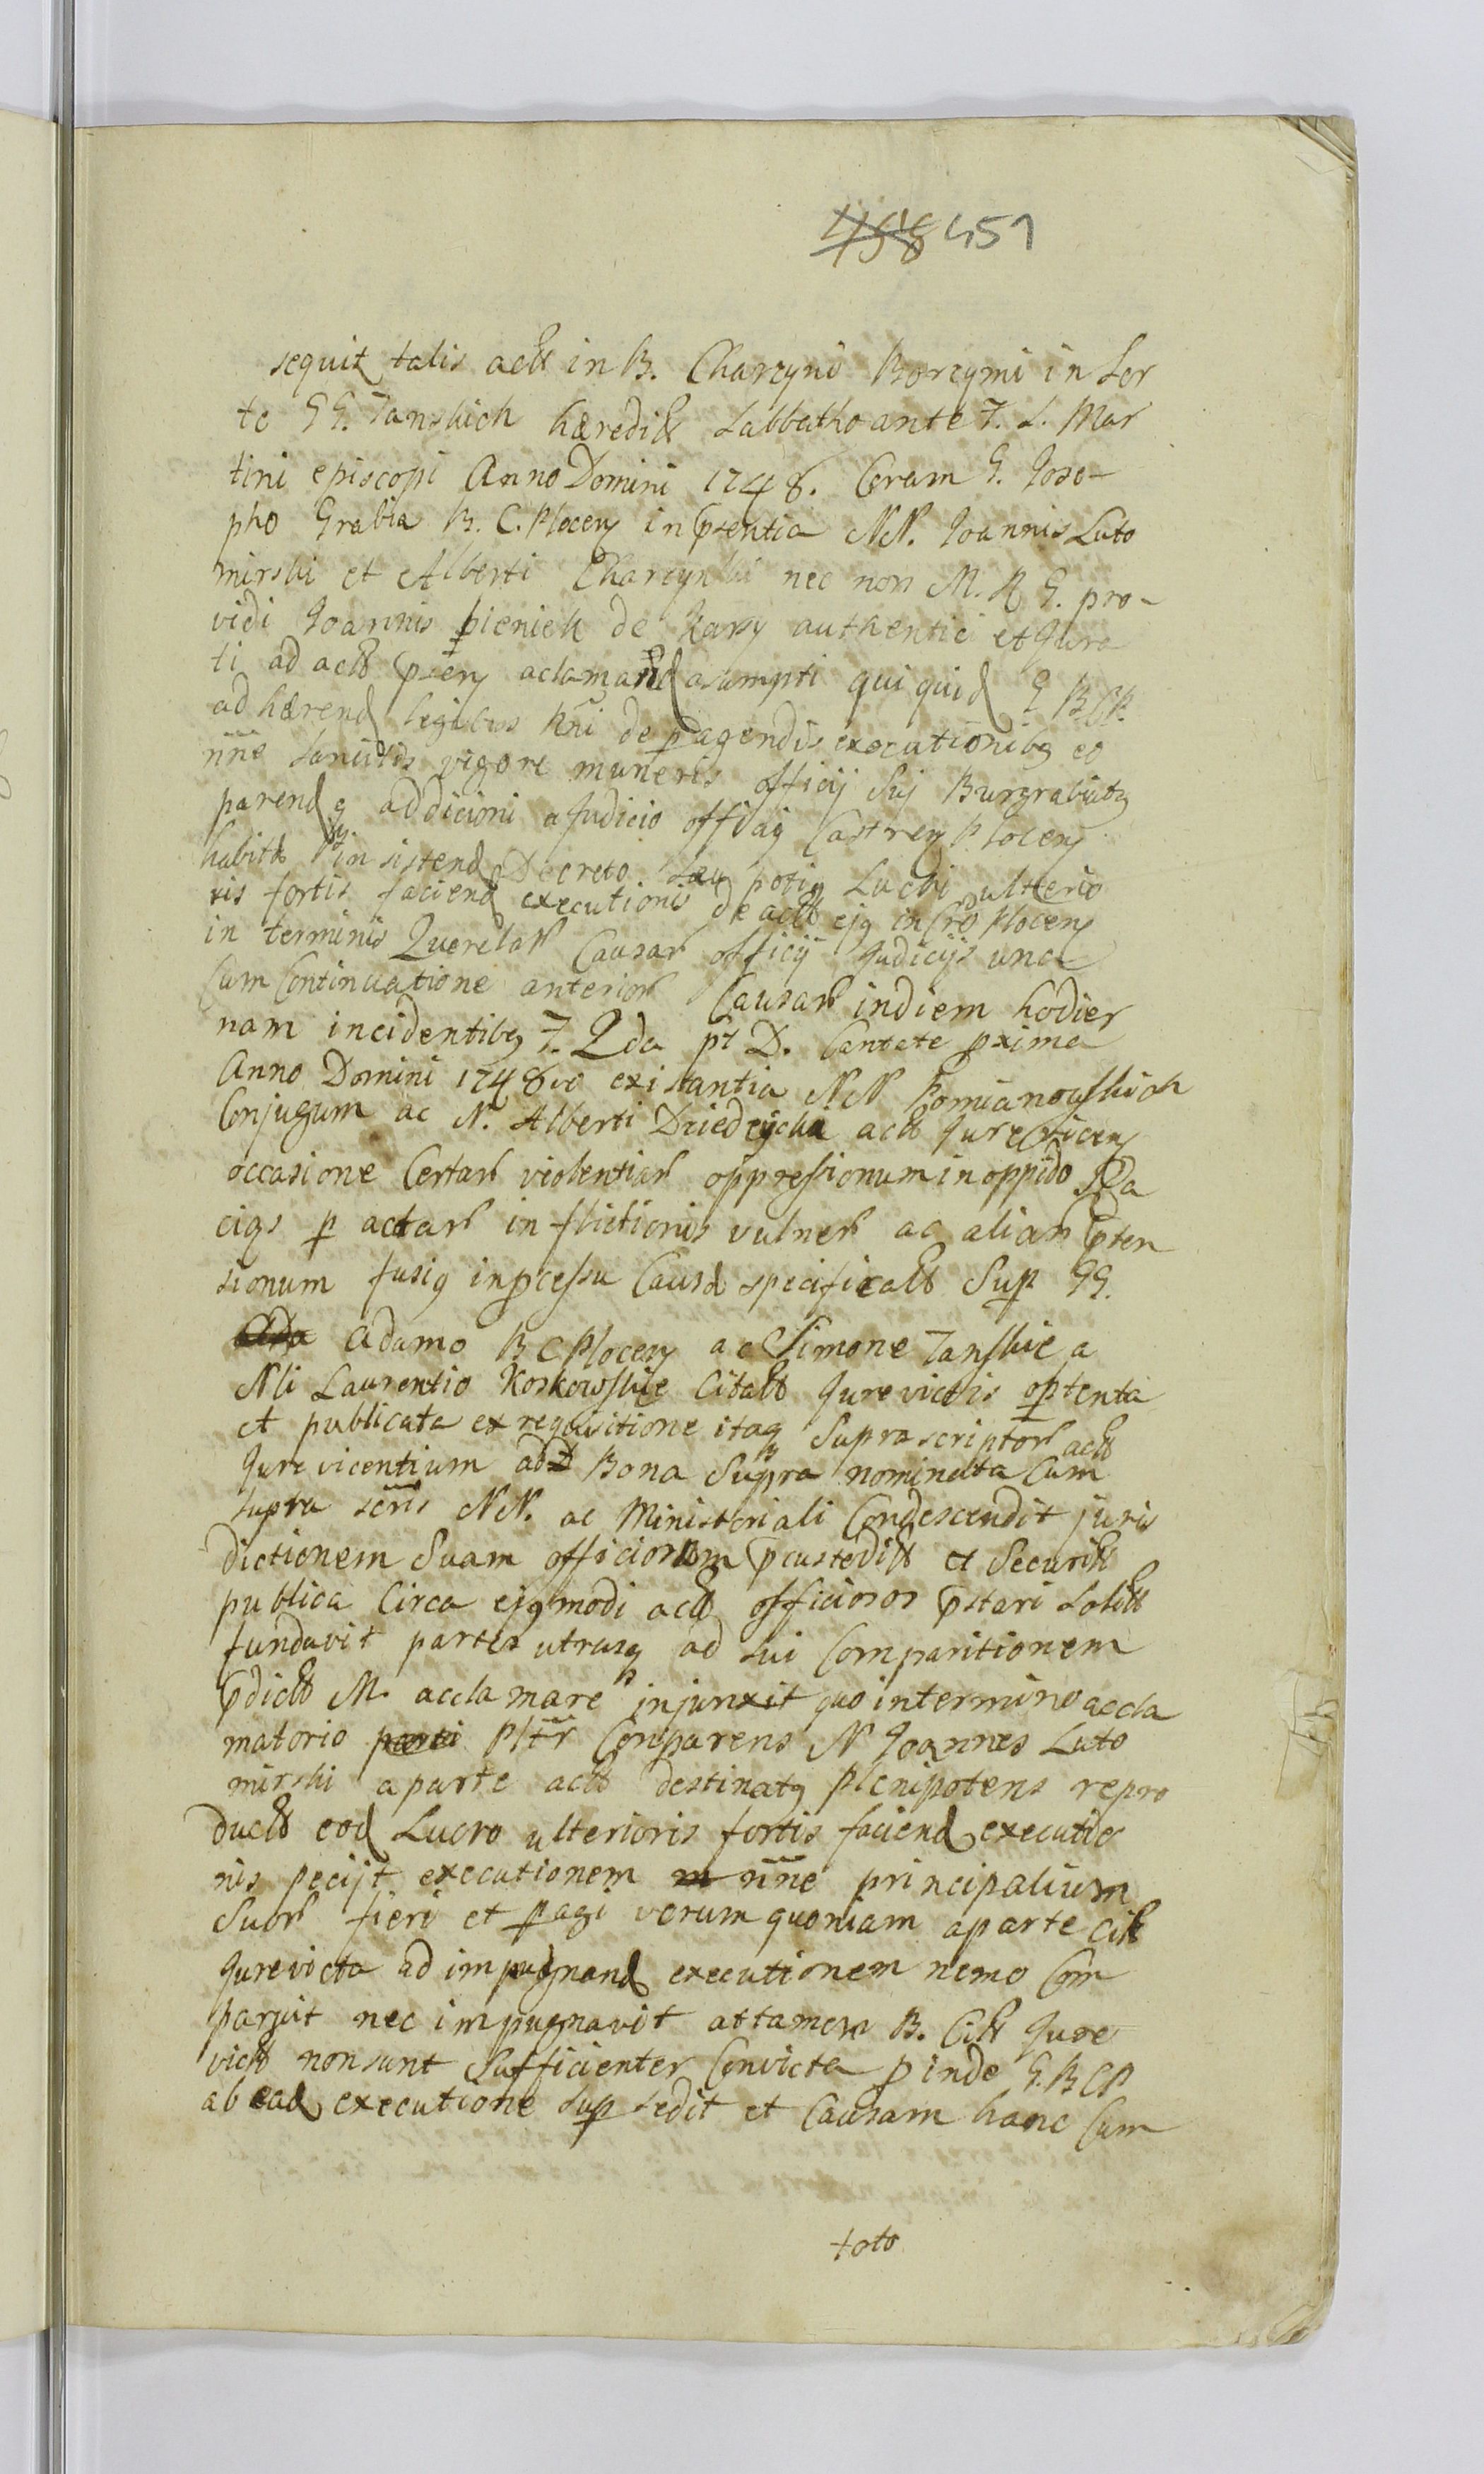 498 451
sequit talis actt in B. Charcyni Borcymi in Sor
te GG. Tanskich hæredibt Sabbatho ante F. S. Mar
tini episcopi Anno Domini 1748. Coram G. Jose-
pho Grabia B. C. Plocen in pñtia NN. Joannis Luto
mirski et Alberti Charcynski nec non M. R G. pro-
vidi Joannis pieniek de authentici et Jura
ti ad actt acclamand asumpti qui quid G BCP.
adhærend legibus Rñi de pagendis executionibq eo
nñe Sancitis vigore muneris officij Suj Burgrabiatq
parendq addicioni a Judicio officij Castren Plocen
habita insistend Decreto Seu potiq Lucri ulterio
ris fortis faciend executionis de actt ejq in Cro Plocen
in terminis Querelar Causar officij Judicijs una
Cum Continuatione anterior Causar indiem hodier
nam incidentibq F. 2da pt D. Cantate pxima
Anno Domini 1748vo existantia NN Pomianowskich
Conjugum ac N. Alberti Dziedzicki actt Jurevicen
occasione Certar violentiar oppressionum in oppido Ra
ciqs p actar inflictionis vulner ac aliar pten
sionum fusiq inpcessu Causa specificatt Sup GG.
Adamo B C Plocen ac Simone Tanskie a
Nli Laurentio Koskowskie Citatt Jurevictis optenta
et publicata ex requisitione itaq Suprascriptor actt
Jurevicentium ad Bona Supra nominata Cum
supra scris NN. ac Ministeriali Condescendit juris
dictionem Suam officiosum pcustodibt et Securibt
publica Circa ejqmodi actt officiosos pstari Solitt
fundavit partes utrasq ad sui Comparitionem
pdictt M. acclamare injunxit quo intermino accla
matorio Pltr Comparens N Joannes Luto
mirski aparte actt destinatq Plenipotens repro
ductt eod Lucro ulterioris fortis faciend executio
nis pecijt executionem nñe principalium
Suor fieri et pagi verum quoniam aparte Citt
Jurevicta ad impugnand executionem nemo Com
paruit nec impugnavit attamen B. Citt Jure
victt non sunt Sufficienter Convicta pinde G. B CP
ab ead executione Sup sedit et Causam hanc Cum
toto